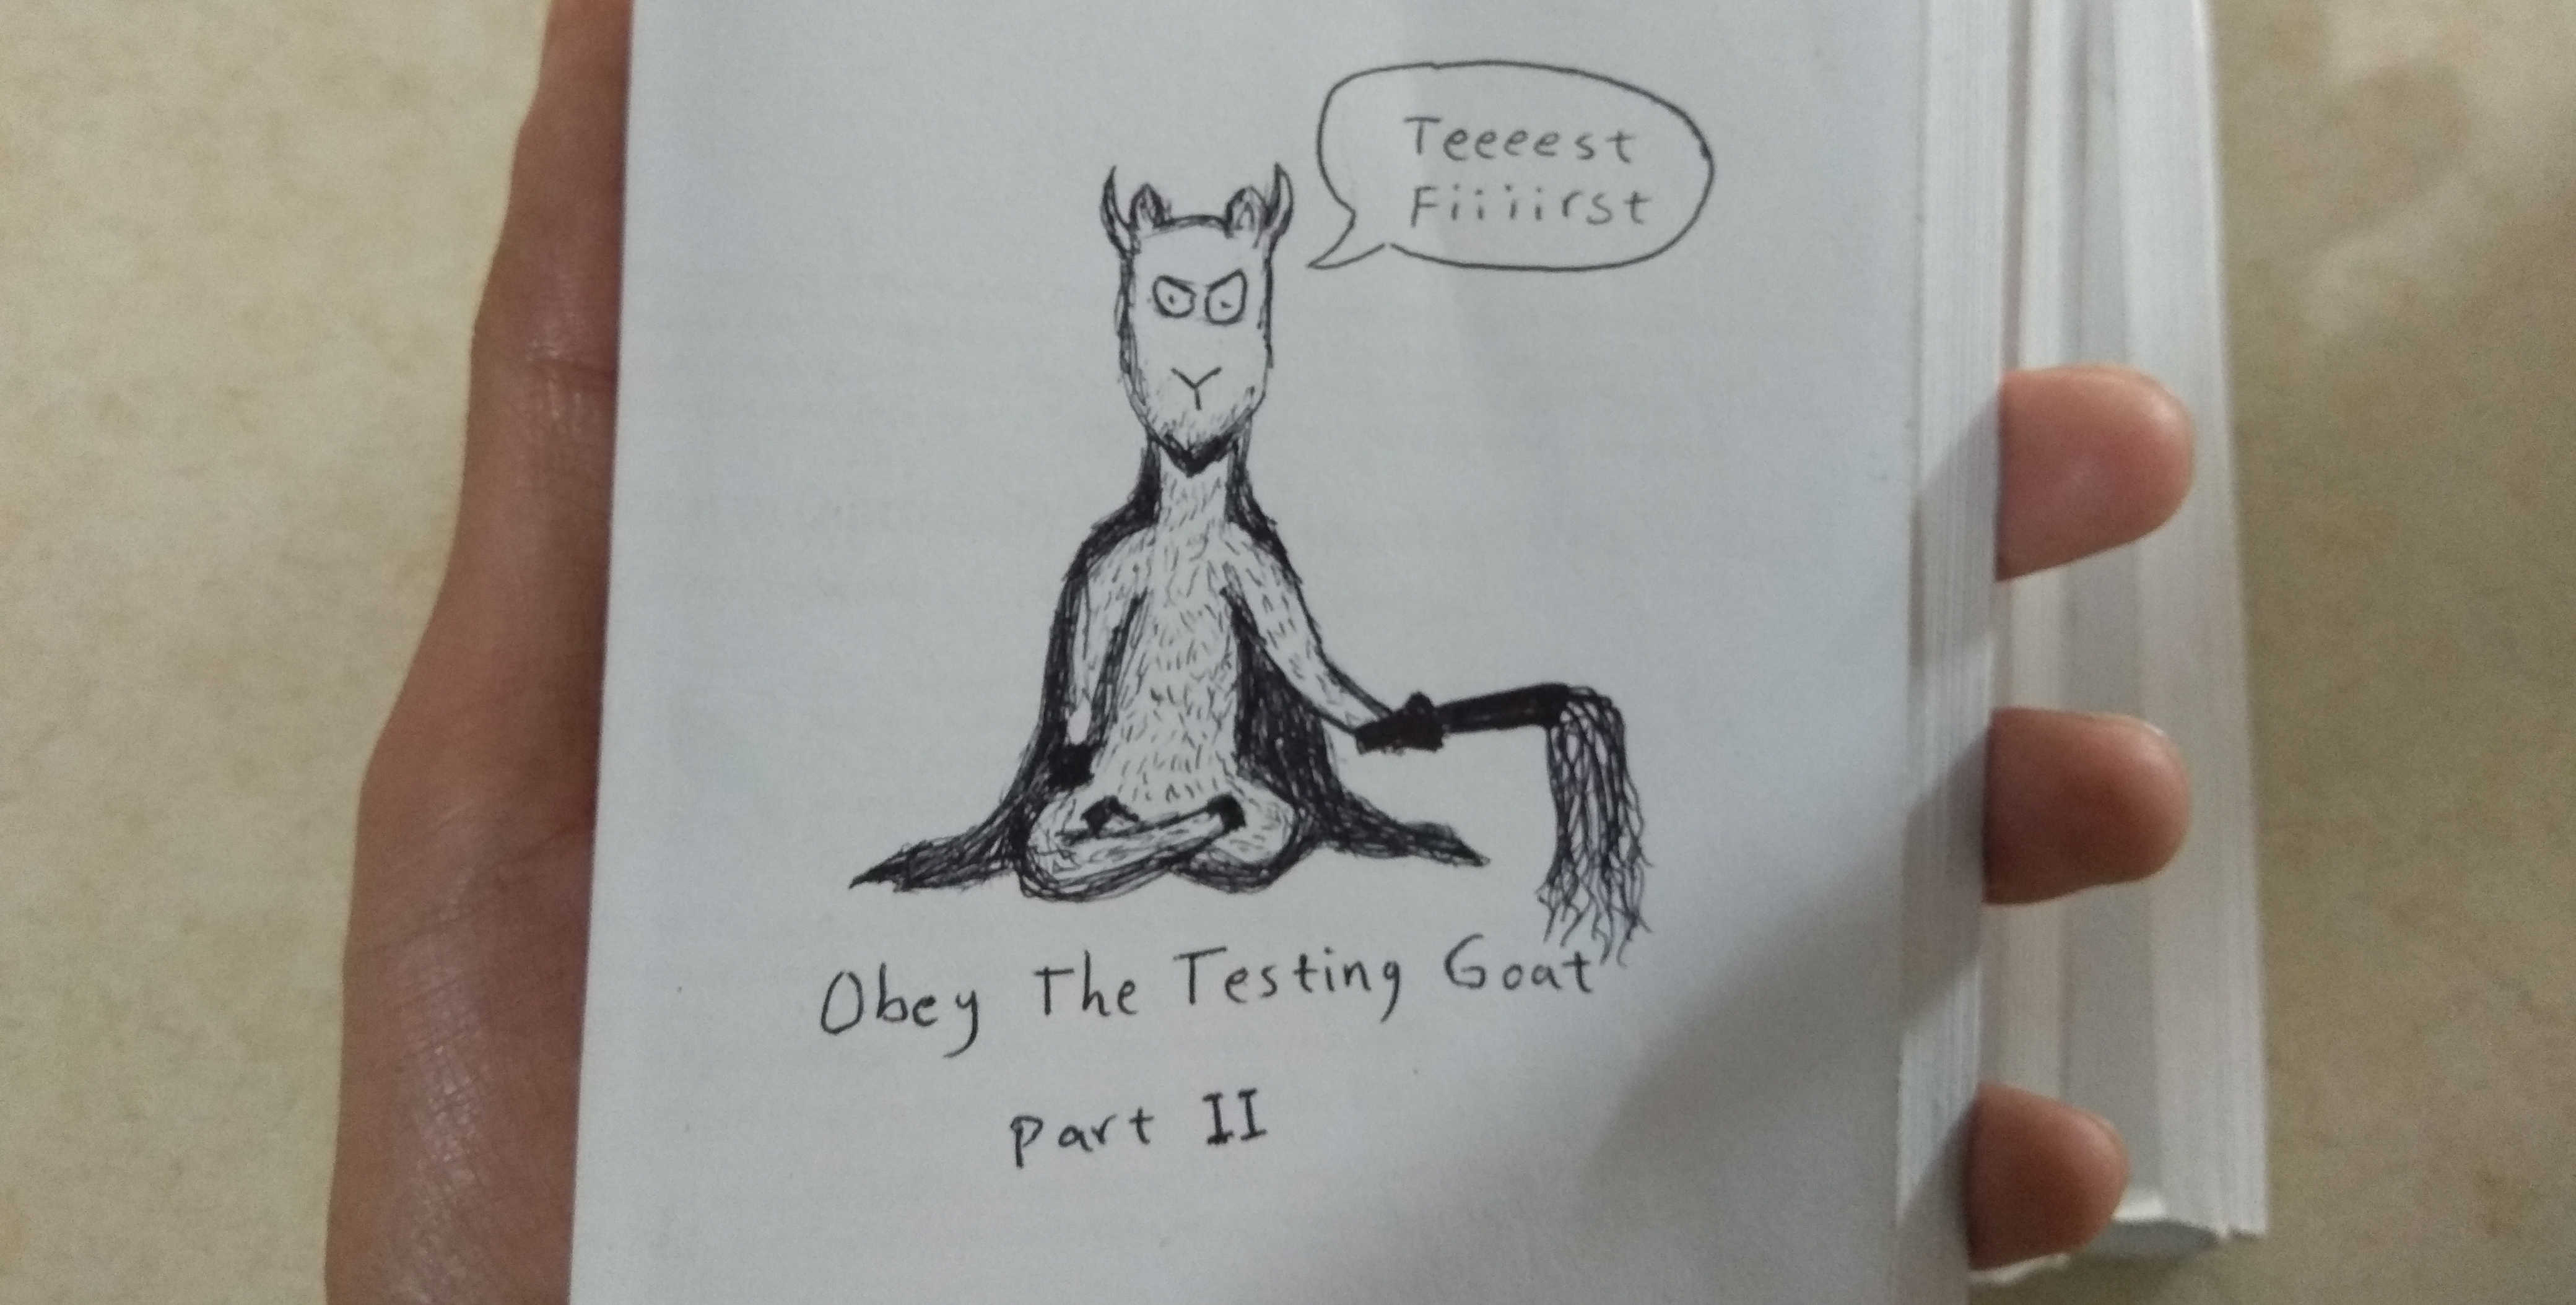 Teeeest
Fiiiiirst
Obey The Testing Goat
Part II